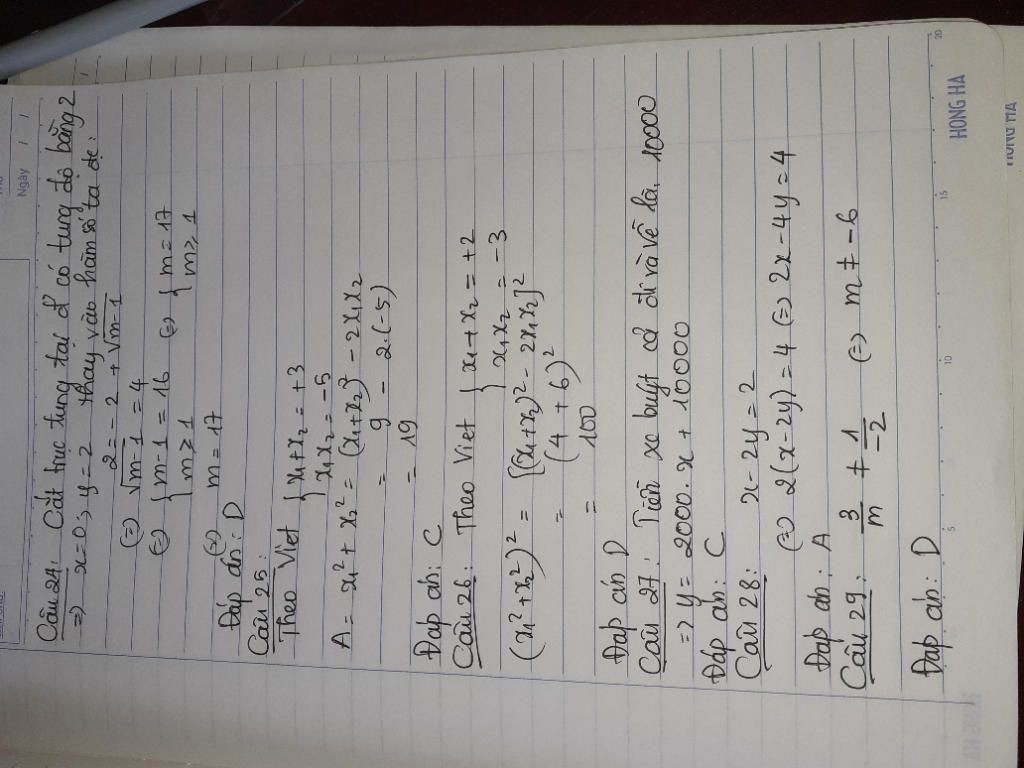 Ngày
Câu 24: Cắt trục tung tại đ' có tung độ bằng 2
=> x=0; y=2 thay vào hàm số ta đc:
2 = -2 + √m-1
(=) √m-1 = 4
(=) { m-1 = 16 (=) { m = 17
m ≥ 1 m ≥ 1
(=) m = 17
Đáp án: D
Câu 25:
Theo Viet { x1+x2 = +3
x1x2 = -5
A = x1² + x2² = (x1+x2)² - 2x1x2
= 9 - 2.(-5)
= 19
Đáp án: C
Câu 26: Theo Viet { x1+x2 = +2
x1x2 = -3
(x1²+x2²)² = [(x1+x2)² - 2x1x2]²
= (4 + 6)²
= 100
Đáp án D
Câu 27: Tiền xe buýt cả đi và về là 10000
=> y = 2000.x + 10000
Đáp án: C
Câu 28: x - 2y = 2
(=) 2(x-2y) = 4 (=) 2x - 4y = 4
Đáp án: A
Câu 29: 3/m ≠ 1/-2 (=) m ≠ -6
Đáp án: D
5 10 15 20
HONG HA
HONG HA